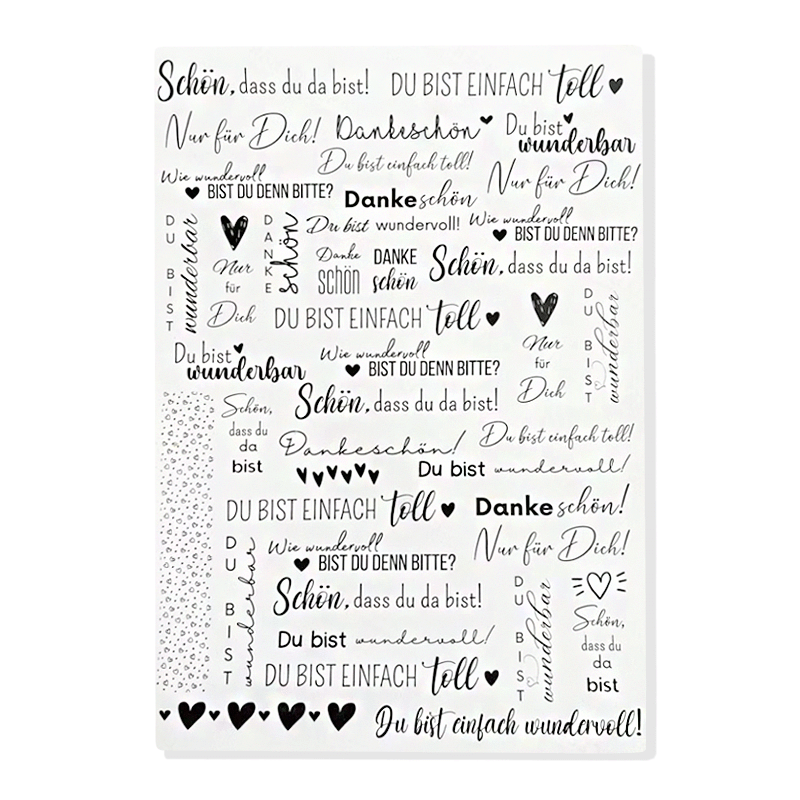 Schön, dass du da bist! DU BIST EINFACH toll
Nur für Dich! Dankeschön Du bist wunderbar
Du bist einfach toll!
Wie wundervoll BIST DU DENN BITTE?
Nur für Dich!
Danke schön
DU BIST wunderbar
Nur für Dich
DANKE schön
Du bist wundervoll!
Wie wundervoll BIST DU DENN BITTE?
Danke schön
DANKE schön
Schön, dass du da bist!
DU BIST EINFACH toll
Nur für Dich
DU BIST wunderbar
Du bist wunderbar
Wie wundervoll BIST DU DENN BITTE?
Schön, dass du da bist!
Schön,
dass du
da
bist
Dankeschön!
Du bist einfach toll!
Du bist wundervoll!
DU BIST EINFACH toll
Danke schön!
DU BIST wunderbar
Wie wundervoll BIST DU DENN BITTE?
Nur für Dich!
Schön, dass du da bist!
DU BIST wunderbar
Schön,
dass du
da
bist
Du bist wundervoll!
DU BIST EINFACH toll
Du bist einfach wundervoll!